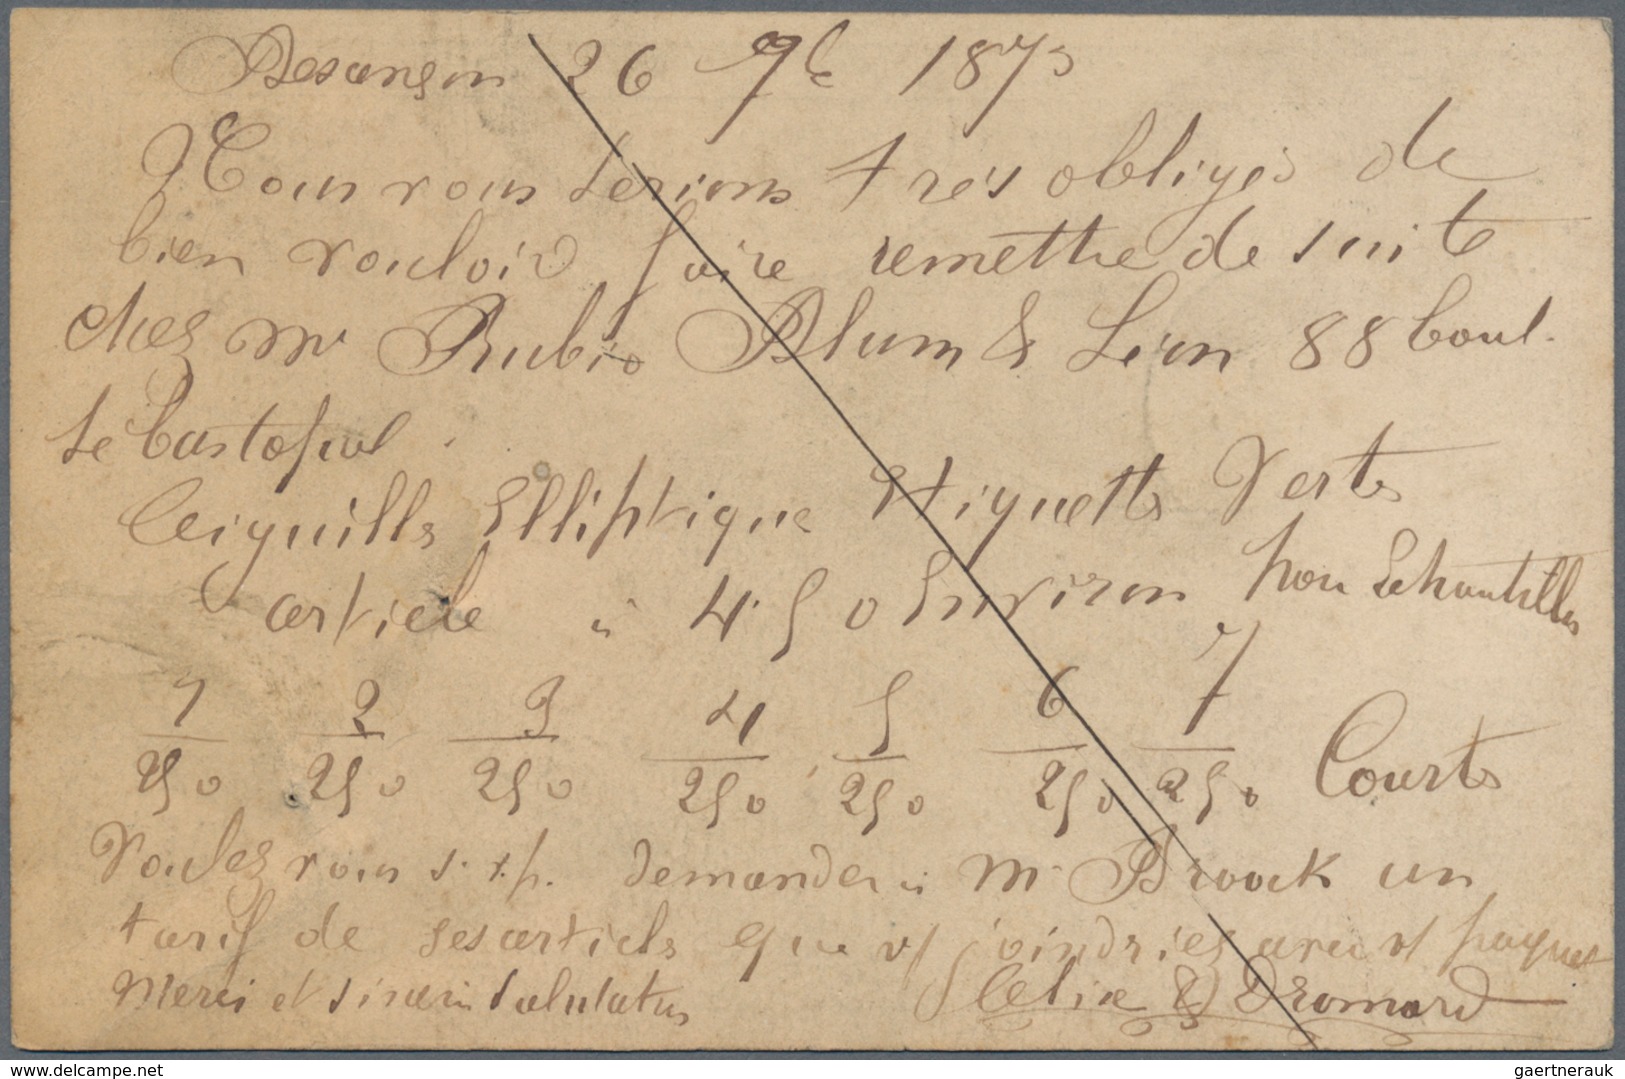 Besançon 26 9b 1873
Nous vous serions très obligés de
bien vouloir faire remettre de suite
chez mr Rubio Blum & Leon 88 boul.
Sebastopol.
aiguills Elliptique Etiquetts Verts
article à 4.50 Environ pour Echantills
1 2 3 4 5 6 7
250 250 250 250 250 250 250 Courts
Voulez vous s. v. p. demander à Mr Broock un
tarif de ses articls que vs joindriez avec vs paquet
Merci et sincèr Salutatns
& Dromard
delcampe.net
gaertnerauk